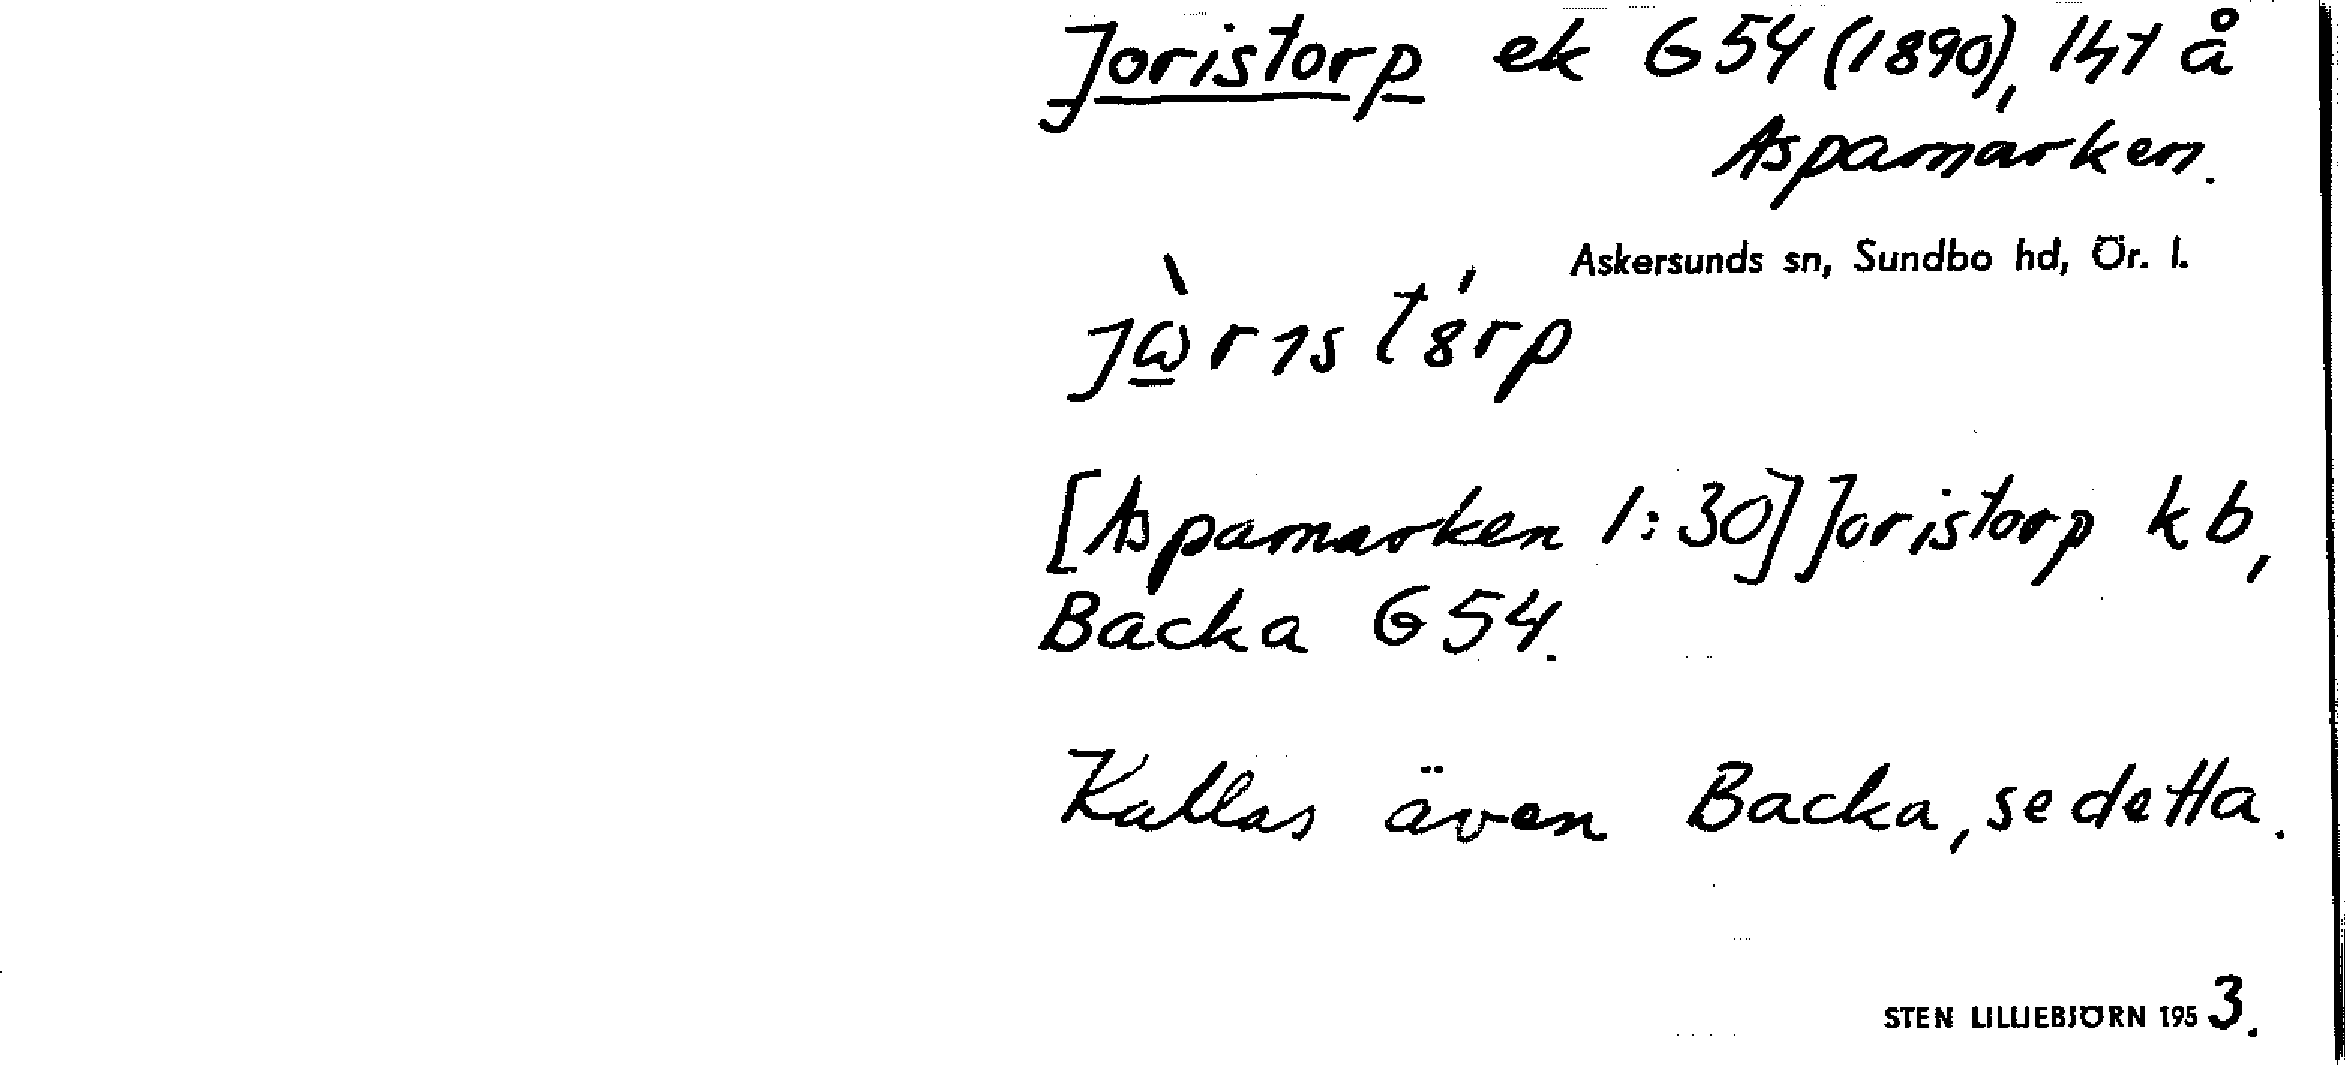 Joristorp ek G54 (1890), lht å
Aspamarken.
Askersunds sn, Sundbo hd, Ör. l.
[Aspamarken 1:30] Joristorp kb,
Backa G54.
Kallas även Backa, se detta.
STEN LILLIEBJÖRN 1953.